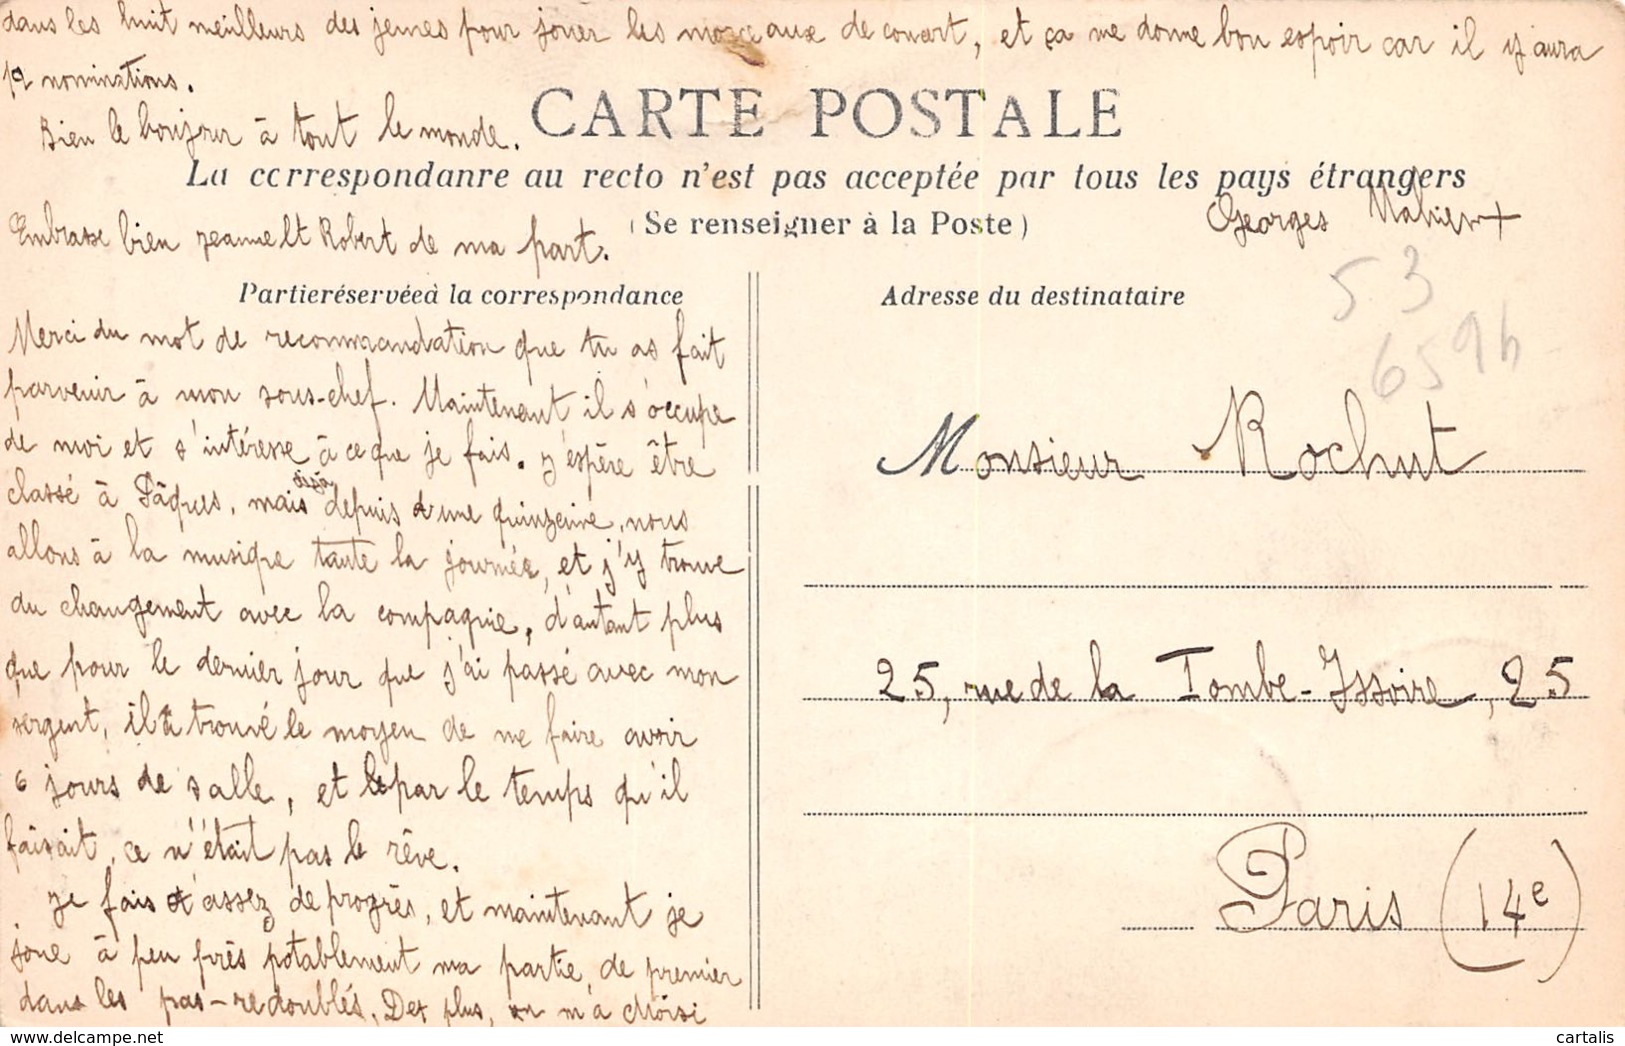 dans les huit meilleurs des jeunes pour jouer les morceaux de concert, et ça me donne bon espoir car il y aura
nominations.
Bien le bonjour à tout le monde.
CARTE POSTALE
La correspondanre au recto n'est pas acceptée par tous les pays étrangers
(Se renseigner à la Poste)
Georges
Embrasse bien Jeanne et Robert de ma part.
53
659h
Partieréservéeà la correspondance
Adresse du destinataire
Merci du mot de recommandation que tu as fait
parvenir à mon sous-chef. Maintenant il s'occupe
de moi et s'intéresse à ce que je fais. J'espère être
classé à Pâques, mais déjà depuis d'une quinzaine, nous
allons à la musique toute la journée, et j'y trouve
du changement avec la compagnie, d'autant plus
que pour le dernier jour que j'ai passé avec mon
sergent, il a trouvé le moyen de me faire avoir
6 jours de salle, et par le temps qu'il
faisait, ce n'était pas le rêve.
Je fais assez de progrès, et maintenant je
joue à peu près potablement ma partie de premier
dans les pas-redoublés. De plus, on m'a choisi
Monsieur Rochut
25, rue de la Tombe-Issoire, 25
Paris (14e)
cartalis